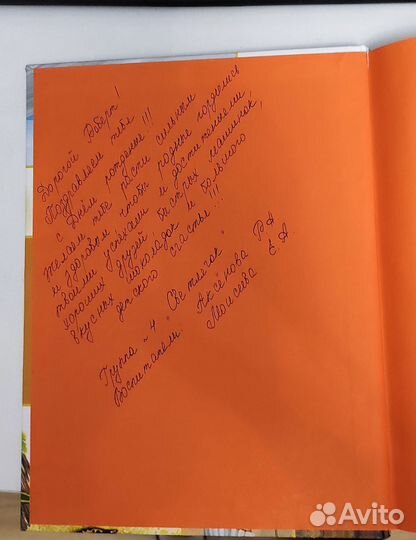 Дорогой Роберт!
Поздравляем тебя
с Днём рождения!!!
Желаем тебе расти сильным
и здоровым чтобы родные гордились
твоими успехами и достижениями
хороших друзей быстрых машинок,
вкусных шоколадок и большого
детского счастья!!!
Группа №4 "Светлячок"
Воспитатели: Аксёнова Р А
Моисеева Е А
Avito